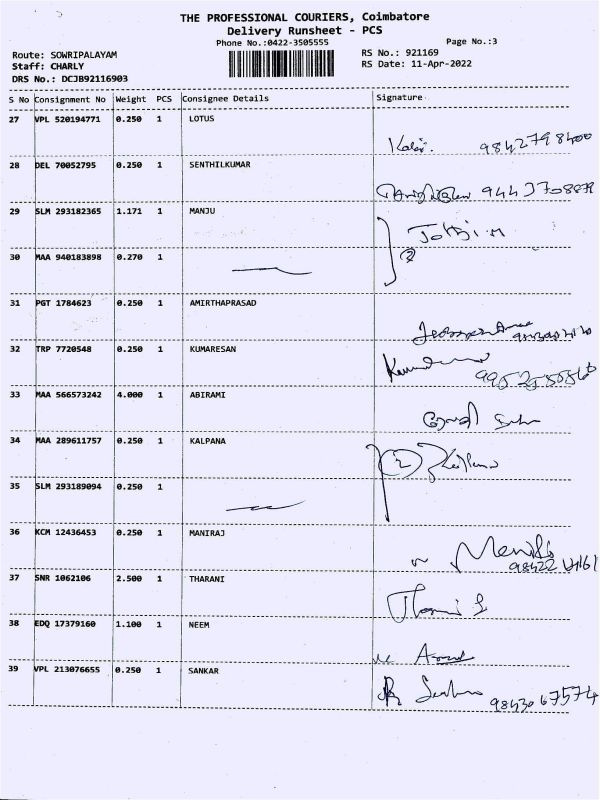 THE PROFESSIONAL COURIERS, Coimbatore
Delivery Runsheet - PCS
Phone No.:0422-3505555
Page No.:3
Route: SOWRIPALAYAM
RS No.: 921169
Staff: CHARLY
RS Date: 11-Apr-2022
DRS No.: DCJB92116903
S No Consignment No Weight PCS Consignee Details Signature
27 VPL 520194771 0.250 1 LOTUS
9842798400
28 DEL 70052795 0.250 1 SENTHILKUMAR
29 SLM 293182365 1.171 1 MANJU
30 MAA 940183898 0.270 1
2
31 PGT 1784623 0.250 1 AMIRTHAPRASAD
32 TRP 7720548 0.250 1 KUMARESAN
33 MAA 566573242 4.000 1 ABIRAMI
34 MAA 289611757 0.250 1 KALPANA
2 Kalpana
35 SLM 293189094 0.250 1
36 KCM 12436453 0.250 1 MANIRAJ
37 SNR 1062106 2.500 1 THARANI
Tharani S
38 EDQ 17379160 1.100 1 NEEM
39 VPL 213076655 0.250 1 SANKAR
9843067574